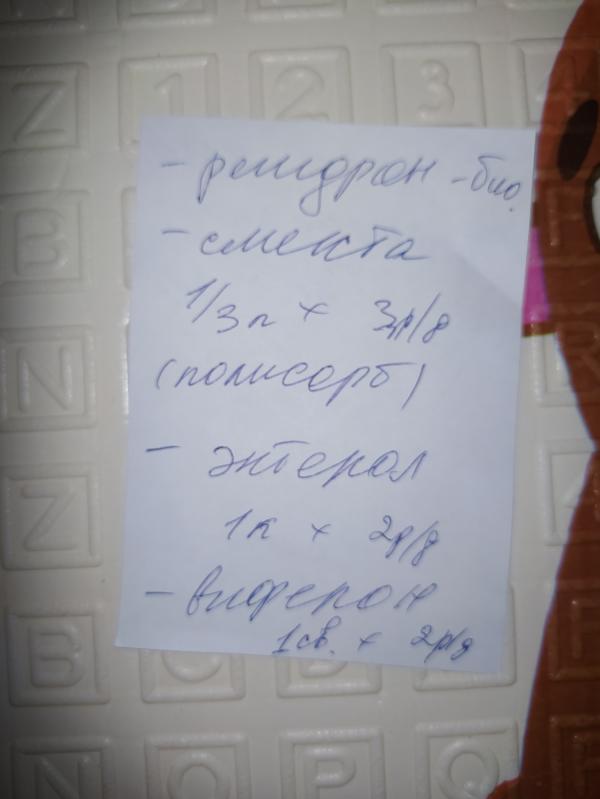 Z 1 2 3
- регидрон -био.
- смекта
1/3 п x 3р/д
(полисорб)
- энтерол
1 к x 2р/д
- виферон
1 св. x 2р/д
B
N
Z
B
N O P Q